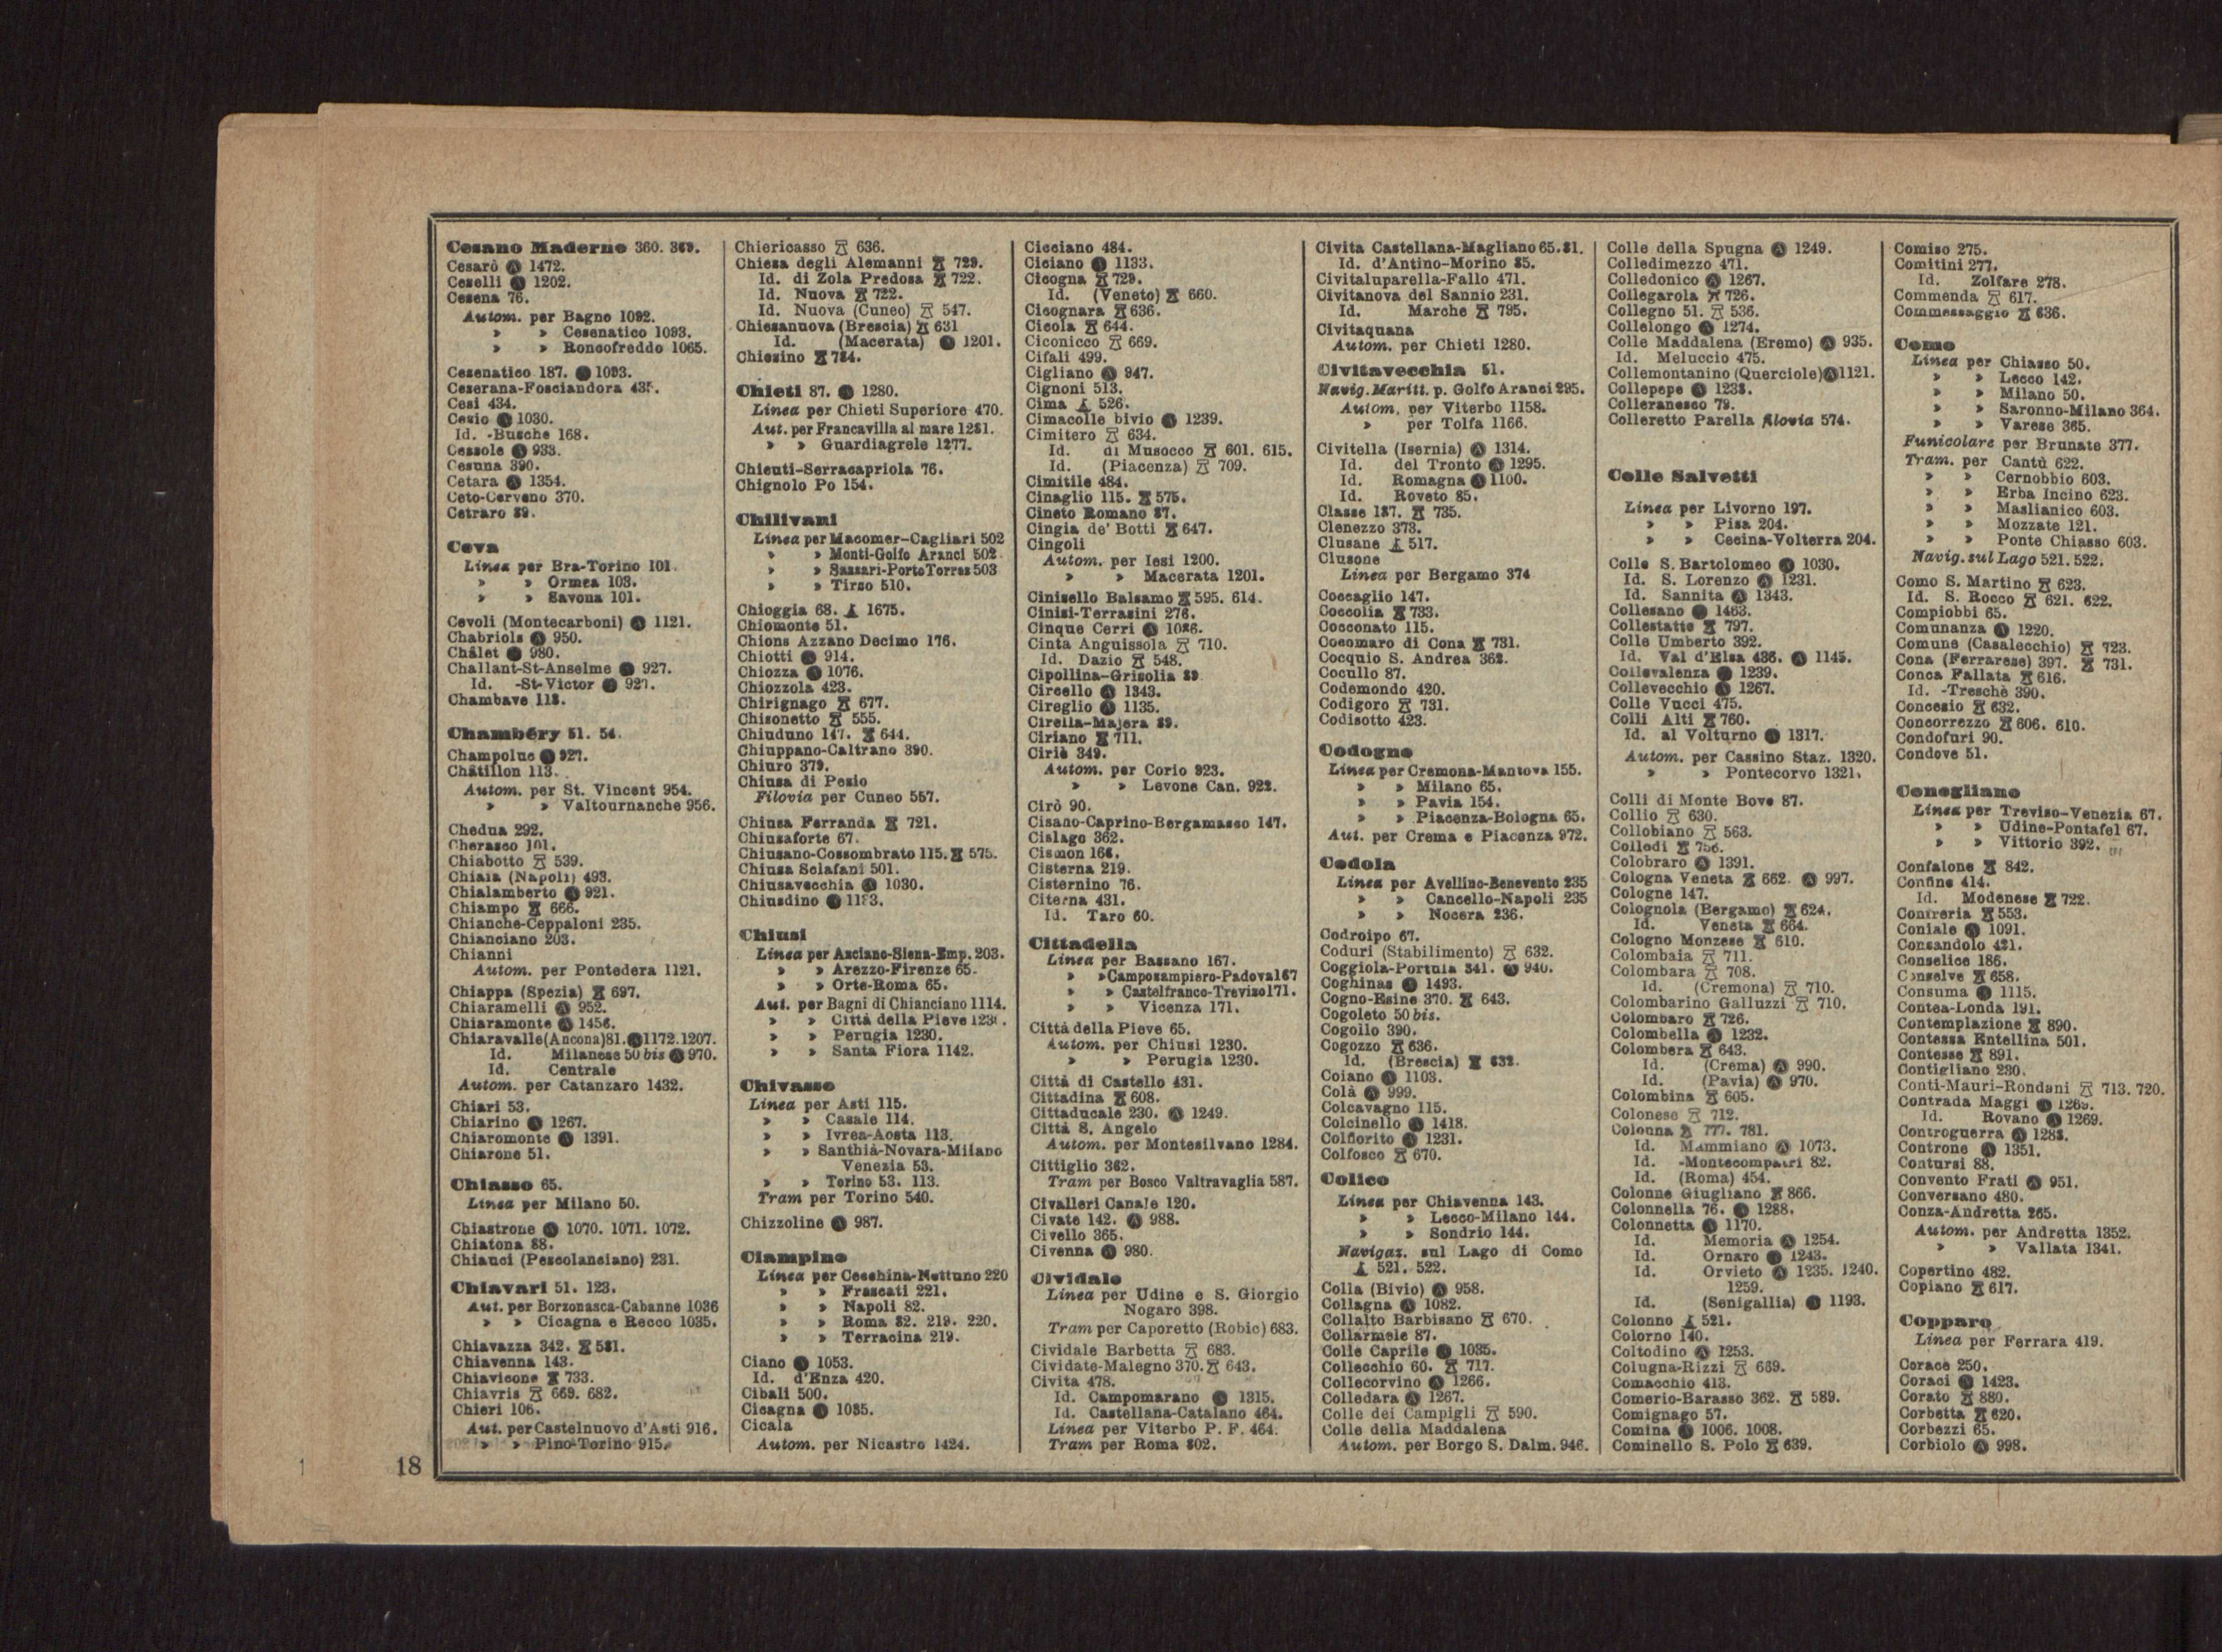 Cesano Maderno 360. 369.
Cesarò Ⓐ 1472.
Ceselli Ⓐ 1202.
Cesena 76.
Autom. per Bagno 1092.
» » Cesenatico 1093.
» » Roncofreddo 1065.
Cesenatico 187. Ⓐ 1093.
Ceserana-Fosciandora 435.
Cesi 434.
Cesio Ⓐ 1030.
Id. -Busche 168.
Cessole Ⓐ 933.
Cesuna 390.
Cetara Ⓐ 1354.
Ceto-Cerveno 370.
Cetraro 89.
Ceva
Linea per Bra-Torino 101.
» » Ormea 103.
» » Savona 101.
Cevoli (Montecarboni) Ⓐ 1121.
Chabriols Ⓐ 950.
Châlet Ⓐ 980.
Challant-St-Anselme Ⓐ 927.
Id. -St-Victor Ⓐ 927.
Chambave 113.
Chambéry 51. 54.
Champoluc Ⓐ 927.
Châtillon 113.
Autom. per St. Vincent 954.
» » Valtournanche 956.
Chedua 292.
Cherasco 101.
Chiabotto 539.
Chiaia (Napoli) 493.
Chialamberto Ⓐ 921.
Chiampo 666.
Chianche-Ceppaloni 235.
Chianciano 203.
Chianni
Autom. per Pontedera 1121.
Chiappa (Spezia) 697.
Chiaramelli Ⓐ 952.
Chiaramonte Ⓐ 1456.
Chiaravalle (Ancona) 81. Ⓐ 1172. 1207.
Id. Milanese 50 bis Ⓐ 970.
Id. Centrale
Autom. per Catanzaro 1432.
Chiari 53.
Chiarino Ⓐ 1267.
Chiaromonte Ⓐ 1391.
Chiarone 51.
Chiasso 65.
Linea per Milano 50.
Chiastrone Ⓐ 1070. 1071. 1072.
Chiatona 88.
Chiauci (Pescolanciano) 231.
Chiavari 51. 123.
Aut. per Borzonasca-Cabanne 1036
» » Cicagna e Recco 1035.
Chiavazza 342. 581.
Chiavenna 143.
Chiavicone 733.
Chiavris 669. 682.
Chieri 106.
Aut. per Castelnuovo d'Asti 916.
» » Pino-Torino 915.
Chiericasso 636.
Chiesa degli Alemanni 729.
Id. di Zola Predosa 722.
Id. Nuova 722.
Id. Nuova (Cuneo) 547.
Chiesanuova (Brescia) 631
Id. (Macerata) Ⓐ 1201.
Chiesino 784.
Chieti 87. Ⓐ 1280.
Linea per Chieti Superiore 470.
Aut. per Francavilla al mare 1281.
» » Guardiagrele 1277.
Chieuti-Serracapriola 76.
Chignolo Po 154.
Chilivani
Linea per Macomer-Cagliari 502
» » Monti-Golfo Aranci 502
» » Sassari-Porto Torres 503
» » Tirso 510.
Chioggia 68. 1675.
Chiomonte 51.
Chions Azzano Decimo 176.
Chiotti Ⓐ 914.
Chiozza Ⓐ 1076.
Chiozzola 423.
Chirignago 677.
Chisonetto 555.
Chiuduno 147. 644.
Chiuppano-Caltrano 390.
Chiuro 379.
Chiusa di Pesio
Filovia per Cuneo 557.
Chiusa Ferranda 721.
Chiusaforte 67.
Chiusano-Cossombrato 115. 575.
Chiusa Sclafani 501.
Chiusavecchia Ⓐ 1030.
Chiusdino Ⓐ 1183.
Chiusi
Linea per Asciano-Siena-Emp. 203.
» » Arezzo-Firenze 65.
» » Orte-Roma 65.
Aut. per Bagni di Chianciano 1114.
» » Città della Pieve
» » Perugia 1230.
» » Santa Fiora 1142.
Chivasso
Linea per Asti 115.
» » Casale 114.
» » Ivrea-Aosta 113.
» » Santhià-Novara-Milano
Venezia 53.
» » Torino 53. 113.
Tram per Torino 540.
Chizzoline Ⓐ 987.
Ciampino
Linea per Cecchina-Nettuno 220
» » Frascati 221.
» » Napoli 82.
» » Roma 82. 219. 220.
» » Terracina 219.
Ciano Ⓐ 1053.
Id. d'Enza 420.
Cibali 500.
Cicagna Ⓐ 1035.
Cicala
Autom. per Nicastro 1424.
Cicciano 484.
Ciciano Ⓐ 1133.
Cicogna 729.
Id. (Veneto) 660.
Cicognara 636.
Cicola 644.
Ciconicco 669.
Cifali 499.
Cigliano Ⓐ 947.
Cignoni 513.
Cima 526.
Cimacolle bivio Ⓐ 1239.
Cimitero 634.
Id. di Musocco 601. 615.
Id. (Piacenza) 709.
Cimitile 484.
Cinaglio 115. 575.
Cineto Romano 87.
Cingia de' Botti 647.
Cingoli
Autom. per Iesi 1200.
» » Macerata 1201.
Cinisello Balsamo 595. 614.
Cinisi-Terrasini 276.
Cinque Cerri Ⓐ 1086.
Cinta Anguissola 710.
Id. Dazio 548.
Cipollina-Grisolia 89
Circello Ⓐ 1343.
Cireglio Ⓐ 1135.
Cirella-Majera 89.
Ciriano 711.
Ciriè 349.
Autom. per Corio 923.
» » Levone Can. 922.
Cirò 90.
Cisano-Caprino-Bergamasco 147.
Cislago 362.
Cismon 168.
Cisterna 219.
Cisternino 76.
Citerna 431.
Id. Taro 60.
Cittadella
Linea per Bassano 167.
» » Camposampiero-Padova 167
» » Castelfranco-Treviso 171.
» » Vicenza 171.
Città della Pieve 65.
Autom. per Chiusi 1230.
» » Perugia 1230.
Città di Castello 431.
Cittadina 608.
Cittaducale 230. Ⓐ 1249.
Città S. Angelo
Autom. per Montesilvano 1284.
Cittiglio 362.
Tram per Bosco Valtravaglia 587.
Civalleri Canale 120.
Civate 142. Ⓐ 988.
Civello 365.
Civenna Ⓐ 980.
Cividale
Linea per Udine e S. Giorgio
Nogaro 398.
Tram per Caporetto (Robic) 683.
Cividale Barbetta 683.
Cividate-Malegno 370. 643.
Civita 478.
Id. Campomarano Ⓐ 1315.
Id. Castellana-Catalano 464.
Linea per Viterbo P. F. 464.
Tram per Roma 802.
Civita Castellana-Magliano 65. 81.
Id. d'Antino-Morino 85.
Civitaluparella-Fallo 471.
Civitanova del Sannio 231.
Id. Marche 795.
Civitaquana
Autom. per Chieti 1280.
Civitavecchia 51.
Navig. Maritt. p. Golfo Aranci 295.
Autom. per Viterbo 1158.
» per Tolfa 1166.
Civitella (Isernia) Ⓐ 1314.
Id. del Tronto Ⓐ 1295.
Id. Romagna Ⓐ 1100.
Id. Roveto 85.
Classe 187. 735.
Clenezzo 373.
Clusane 517.
Clusone
Linea per Bergamo 374
Coccaglio 147.
Coccolia 733.
Cocconato 115.
Cocomaro di Cona 731.
Cocquio S. Andrea 362.
Cocullo 87.
Codemondo 420.
Codigoro 731.
Codisotto 423.
Codogno
Linea per Cremona-Mantova 155.
» » Milano 65.
» » Pavia 154.
» » Piacenza-Bologna 65.
Aut. per Crema e Piacenza 972.
Codola
Linea per Avellino-Benevento 235
» » Cancello-Napoli 235
» » Nocera 236.
Codroipo 67.
Coduri (Stabilimento) 632.
Coggiola-Portula 341. Ⓐ 940.
Coghinas Ⓐ 1493.
Cogno-Esine 370. 643.
Cogoleto 50 bis.
Cogollo 390.
Cogozzo 636.
Id. (Brescia) 632.
Coiano Ⓐ 1103.
Colà Ⓐ 999.
Colcavagno 115.
Colcinello Ⓐ 1418.
Colfiorito Ⓐ 1231.
Colfosco 670.
Colico
Linea per Chiavenna 143.
» » Lecco-Milano 144.
» » Sondrio 144.
Navigaz. sul Lago di Como
521. 522.
Colla (Bivio) Ⓐ 958.
Collagna Ⓐ 1082.
Collalto Barbisano 670.
Collarmele 87.
Colle Caprile Ⓐ 1035.
Collecchio 60. 717.
Collecorvino Ⓐ 1266.
Colledara Ⓐ 1267.
Colle dei Campigli 590.
Colle della Maddalena
Autom. per Borgo S. Dalm. 946.
Colle della Spugna Ⓐ 1249.
Colledimezzo 471.
Colledonico Ⓐ 1267.
Collegarola 726.
Collegno 51. 536.
Collelongo Ⓐ 1274.
Colle Maddalena (Eremo) Ⓐ 935.
Id. Meluccio 475.
Collemontanino (Querciole) Ⓐ 1121.
Collepepe Ⓐ 1238.
Colleranesco 79.
Colleretto Parella filovia 574.
Colle Salvetti
Linea per Livorno 197.
» » Pisa 204.
» » Cecina-Volterra 204.
Colle S. Bartolomeo Ⓐ 1030.
Id. S. Lorenzo Ⓐ 1231.
Id. Sannita Ⓐ 1343.
Collesano Ⓐ 1463.
Collestatte 797.
Colle Umberto 392.
Id. Val d'Elsa 436. Ⓐ 1145.
Collevalenza Ⓐ 1239.
Collevecchio Ⓐ 1267.
Colle Vucci 475.
Colli Alti 760.
Id. al Volturno Ⓐ 1317.
Autom. per Cassino Staz. 1320.
» » Pontecorvo 1321.
Colli di Monte Bove 87.
Collio 630.
Collobiano 563.
Collodi 756.
Colobraro Ⓐ 1391.
Cologna Veneta 662. Ⓐ 997.
Cologne 147.
Colognola (Bergamo) 624.
Id. Veneta 664.
Cologno Monzese 610.
Colombaia 711.
Colombara 708.
Id. (Cremona) 710.
Colombarino Galluzzi 710.
Colombaro 726.
Colombella Ⓐ 1232.
Colombera 643.
Id. (Crema) Ⓐ 990.
Id. (Pavia) Ⓐ 970.
Colombina 605.
Colonese 712.
Colonna 777. 781.
Id. Mammiano Ⓐ 1073.
Id. -Montecompatri 82.
Id. (Roma) 454.
Colonne Giugliano 866.
Colonnella 76. Ⓐ 1288.
Colonnetta Ⓐ 1170.
Id. Memoria Ⓐ 1254.
Id. Ornaro Ⓐ 1243.
Id. Orvieto Ⓐ 1235. 1240.
1259.
Id. (Senigallia) Ⓐ 1193.
Colonno 521.
Colorno 140.
Coltodino Ⓐ 1253.
Colugna-Rizzi 669.
Comacchio 413.
Comerio-Barasso 362. 589.
Comignago 57.
Comina Ⓐ 1006. 1008.
Cominello S. Polo 639.
Comiso 275.
Comitini 277.
Id. Zolfare 278.
Commenda 617.
Commessaggio 636.
Como
Linea per Chiasso 50.
» » Lecco 142.
» » Milano 50.
» » Saronno-Milano 364.
» » Varese 365.
Funicolare per Brunate 377.
Tram. per Cantù 622.
» » Cernobbio 603.
» » Erba Incino 623.
» » Maslianico 603.
» » Mozzate 121.
» » Ponte Chiasso 603.
Navig. sul Lago 521. 522.
Como S. Martino 623.
Id. S. Rocco 621. 622.
Compiobbi 65.
Comunanza Ⓐ 1220.
Comune (Casalecchio) 723.
Cona (Ferrarese) 397. 731.
Conca Fallata 616.
Id. -Treschè 390.
Concesio 632.
Concorrezzo 606. 610.
Condofuri 90.
Condove 51.
Conegliano
Linea per Treviso-Venezia 67.
» » Udine-Pontafel 67.
» » Vittorio 392.
Confalone 842.
Confine 414.
Id. Modenese 722.
Contreria 553.
Coniale Ⓐ 1091.
Consandolo 421.
Conselice 186.
Conselve 658.
Consuma Ⓐ 1115.
Contea-Londa 191.
Contemplazione 890.
Contessa Entellina 501.
Contesse 891.
Contigliano 230.
Conti-Mauri-Rondani 713. 720.
Contrada Maggi Ⓐ 1269.
Id. Rovano Ⓐ 1269.
Controguerra Ⓐ 1288.
Controne Ⓐ 1351.
Contursi 88.
Convento Frati Ⓐ 951.
Conversano 480.
Conza-Andretta 265.
Autom. per Andretta 1352.
» » Vallata 1341.
Copertino 482.
Copiano 617.
Copparo
Linea per Ferrara 419.
Corace 250.
Coraci Ⓐ 1423.
Corato 880.
Corbetta 620.
Corbezzi 65.
Corbiolo Ⓐ 998.
18